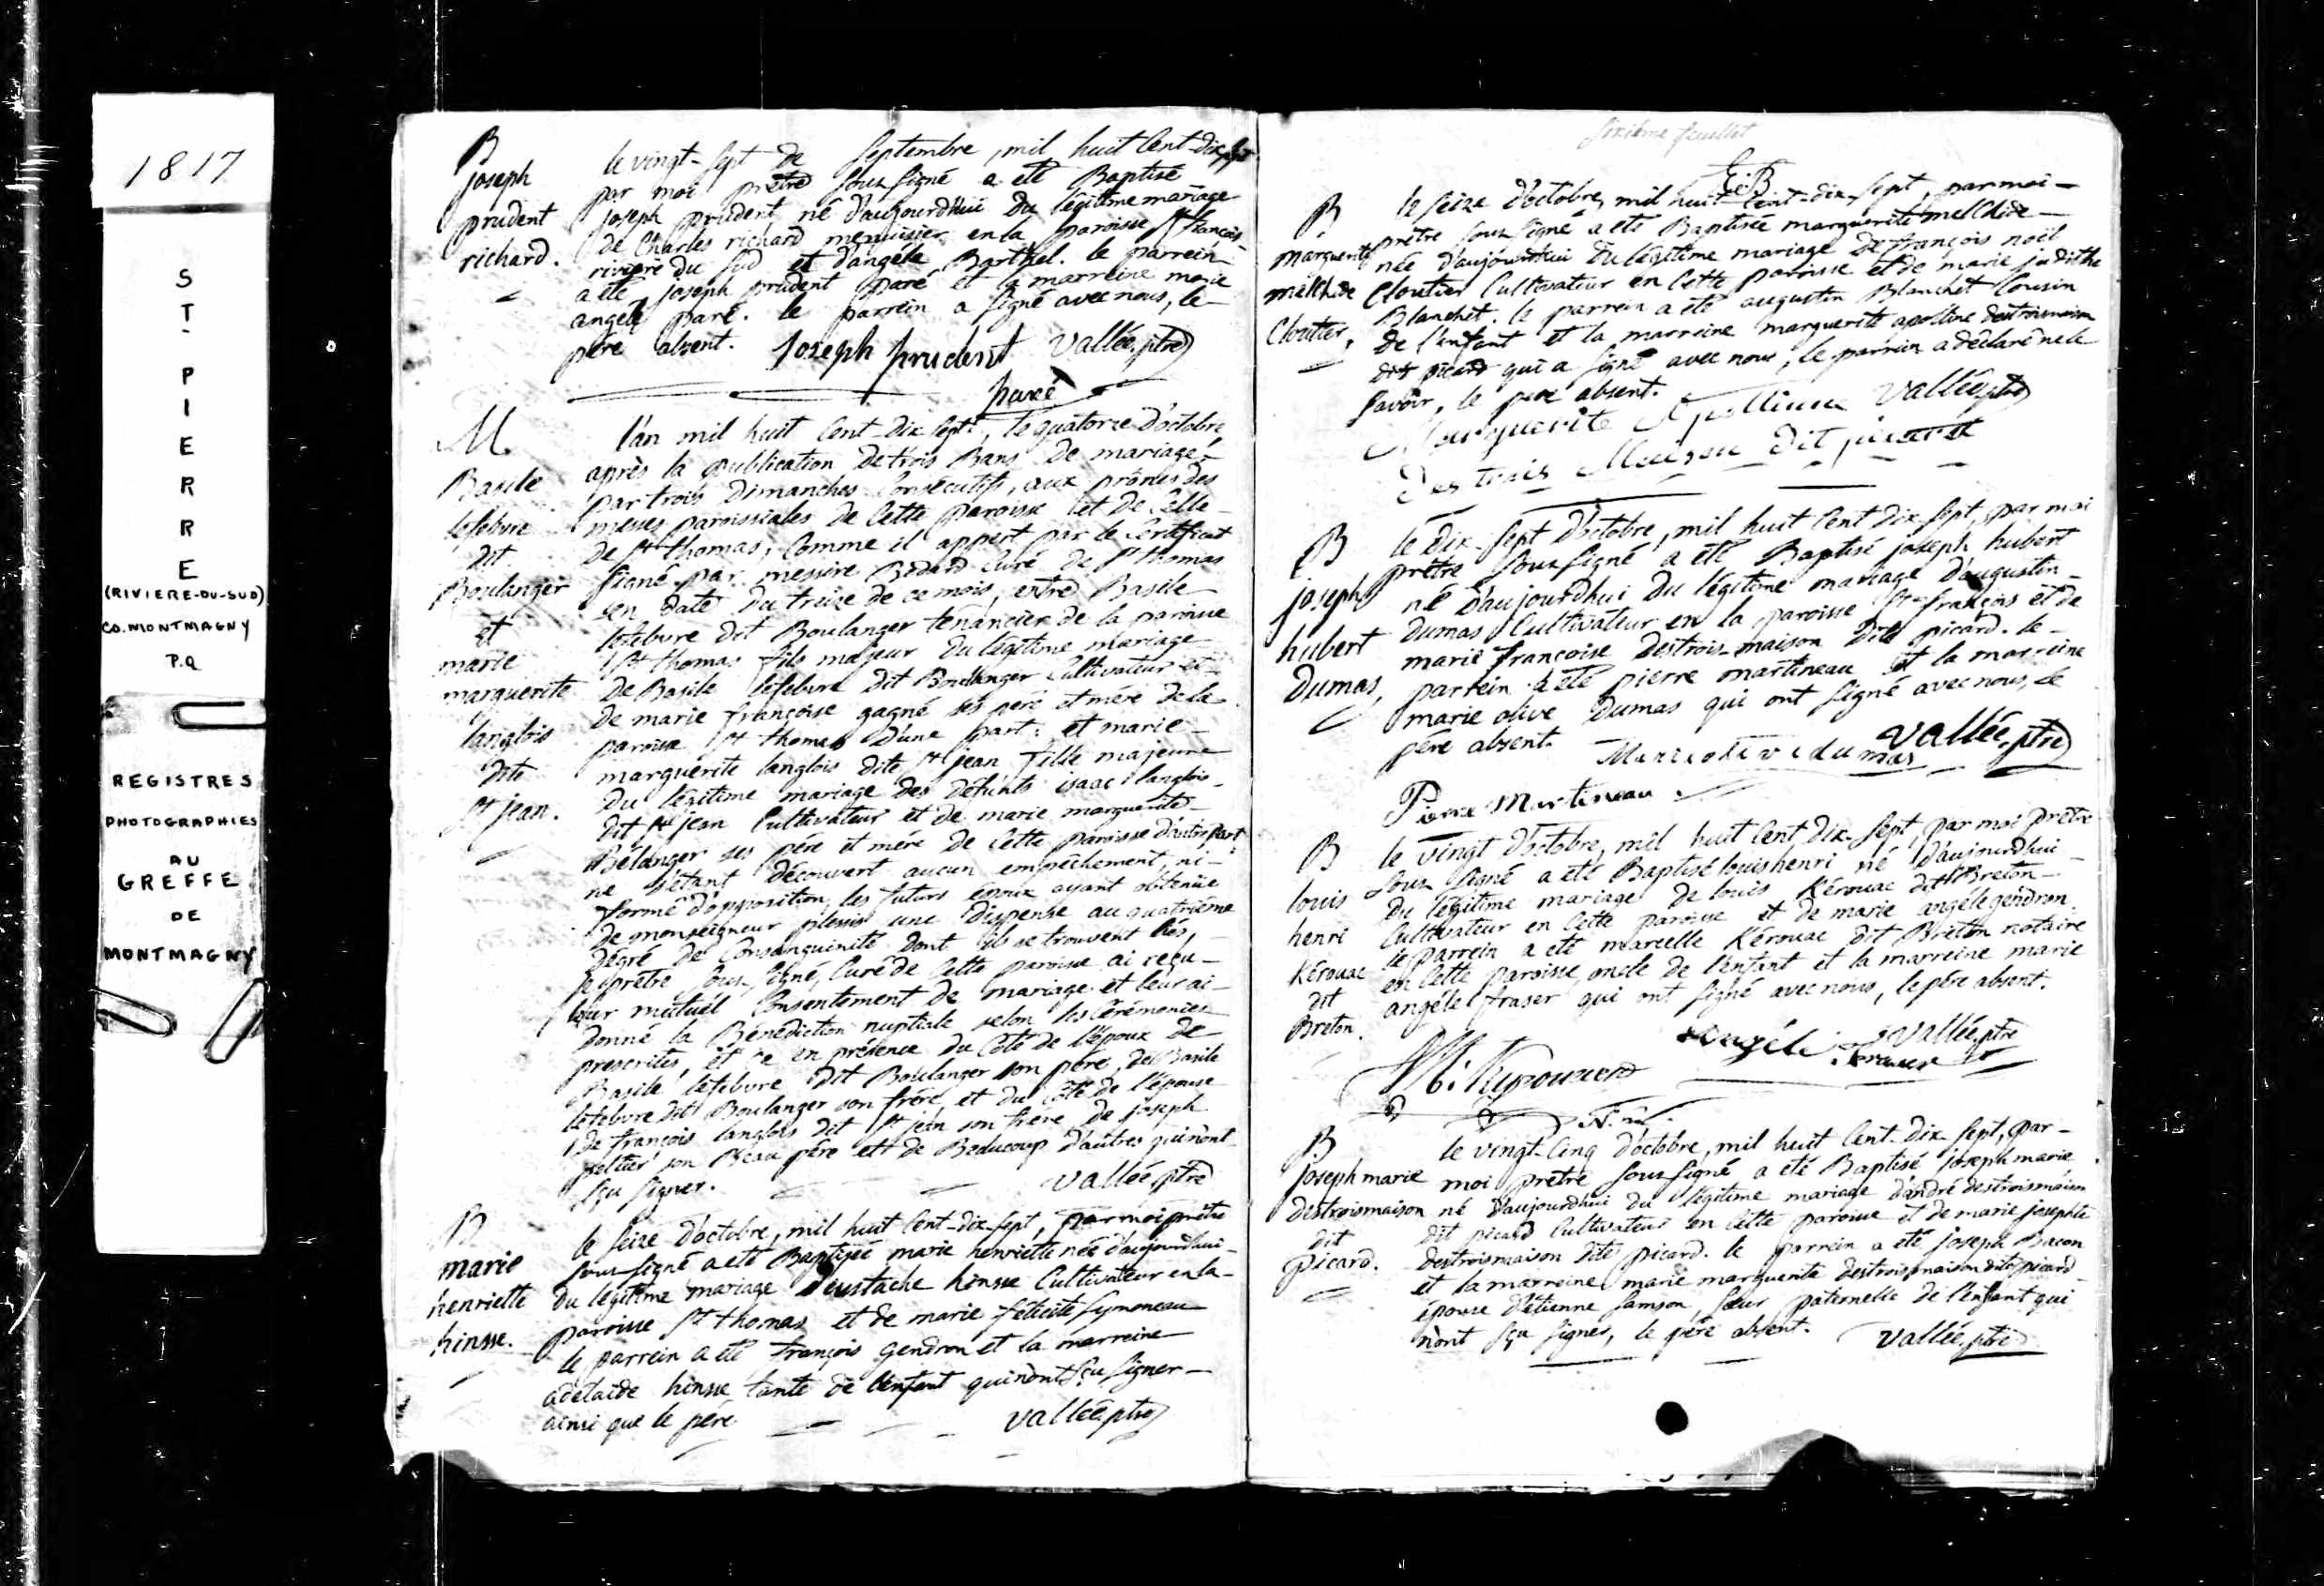 1817
ST PIERRE
(RIVIERE-DU-SUD)
CO. MONTMAGNY
P.Q
REGISTRES
PHOTOGRAPHIES
AU
GREFFE
DE
MONTMAGNY
B
joseph
prudent
richard.
le vingt-sept de septembre, mil huit cent-dix sept
par moi prêtre soussigné a eté Baptisé
joseph prudent né d'aujourdhui du légitime mariage
de Charles richard menuisier en la paroisse St françois
riviere du sud et d'angele Barthel. le parrein
a été joseph prudent paré et la marreine marie
angele paré. le parrein a signé avec nous, le
père absent. Joseph prudent Vallée, ptre
paré
M
Basile
lefebvre
dit
Boulanger
et
marie
marguerite
langlois
dite
St jean.
l'an mil huit cent-dix sept, le quatorze d'octobre
après la publication de trois Bans de mariage
par trois dimanches consécutifs, aux prônes des
messes paroissiales de cette paroisse et de celle
de St thomas, comme il appert par le certificat
signé par messire Bedard curé de St thomas
en date du treize de ce mois, entre Basile
lefebvre dit Boulanger tenancier de la paroisse
St thomas fils majeur du légitime mariage
de Basile lefebvre dit Boulanger cultivateur et
de marie françoise gagné ses père et mère de la
paroisse St thomas d'une part; et marie
marguerite langlois dite St jean fille majeure
du légitime mariage des défunts isaac langlois
dit St jean cultivateur et de marie marguerite
Bélanger ses père et mère de cette paroisse d'autre part
ne s'étant découvert aucun empêchement, ni
formé d'opposition, les futurs époux ayant obtenüe
de monseigneur plessis une dispense au quatrième
dégré de consanguinité dont ils se trouvent liés,
je prêtre sous signé, curé de cette paroisse ai reçu
leur mutuel consentement de mariage et leur ai
donné la Bénédiction nuptiale selon les cérémonies
prescrites, et ce en présence du côté de l'époux de
Basile lefebvre dit Boulanger son père, de Basile
lefebvre dit Boulanger son frére, et du côté de l'épouse
de françois langlois dit St jean son frére de joseph
peltier son Beau père et de Beaucoup d'autres qui n'ont
sçu signer. Vallée ptre
B
marie
henriette
hinsse.
le seize d'octobre, mil huit cent-dix-sept, par moi prêtre
sous signé a eté Baptisée marie henriette née d'aujourdhui
du légitime mariage d'eustache hinsse cultivateur en la
paroisse St thomas et de marie félicité symoneau
le parrein a eté françois gendron et la marreine
adelaide hinsse tante de l'enfant qui n'ont sçu signer
ainsi que le père Vallée, ptre
sixième feuillet
B
marguerite
melchide
Cloutier,
le seize d'octobre, mil huit-cent-dix-sept, par moi
prêtre sous signé a eté Baptisée marguerite melchide
née d'aujourdhui du légitime mariage de françois noël
Cloutier cultivateur en cette paroisse et de marie judithe
Blanchet. le parrein a eté augustin Blanchet cousin
de l'enfant et la marreine marguerite apolline destroismaison
dit picard qui a signé avec nous, le parrein a déclaré ne le
savoir, le père absent. Vallée ptre
Marguerite Apolline
Des trois Maison Dit picard
B
joseph
hubert
Dumas,
le dix-sept d'octobre, mil huit cent dix sept, par moi
prêtre sous signé a eté Baptisé joseph hubert
né d'aujourdhui du légitime mariage d'augustin
dumas cultivateur en la paroisse St françois et de
marie françoise destrois-maison dite picard. le
parrein a été pierre martineau et la marreine
marie olive dumas qui ont signé avec nous, le
père absent. Vallée ptre
Marie olive dumas
Pierre Martineau
B
louis
henri
Kérouac
dit
Breton.
le vingt d'octobre, mil huit cent dix-sept, par moi prêtre
sous signé a eté Baptisé louis henri né d'aujourdhui
du légitime mariage de louis Kérouac dit Breton
cultivateur en cette paroisse et de marie angèle gendron.
le parrein a eté marcelle Kérouac dit Breton notaire
en cette paroisse, oncle de l'enfant et la marreine marie
angèle fraser qui ont signé avec nous, le père absent.
Vallée, ptre
angéle
B
joseph marie
destroismaison
dit
picard.
le vingt-cinq d'octobre, mil huit cent-dix sept, par
moi prêtre sous signé a été Baptisé joseph marie
né d'aujourdhui du légitime mariage d'andré destroismaison
dit picard cultivateur en cette paroisse et de marie josephte
destroismaison dite picard. le parrein a eté joseph Bacon
et la marreine marie marguerite destroismaison dite picard
épouse d'étienne samson, sœur paternelle de l'enfant qui
n'ont sçu signer, le père absent. Vallée, ptre